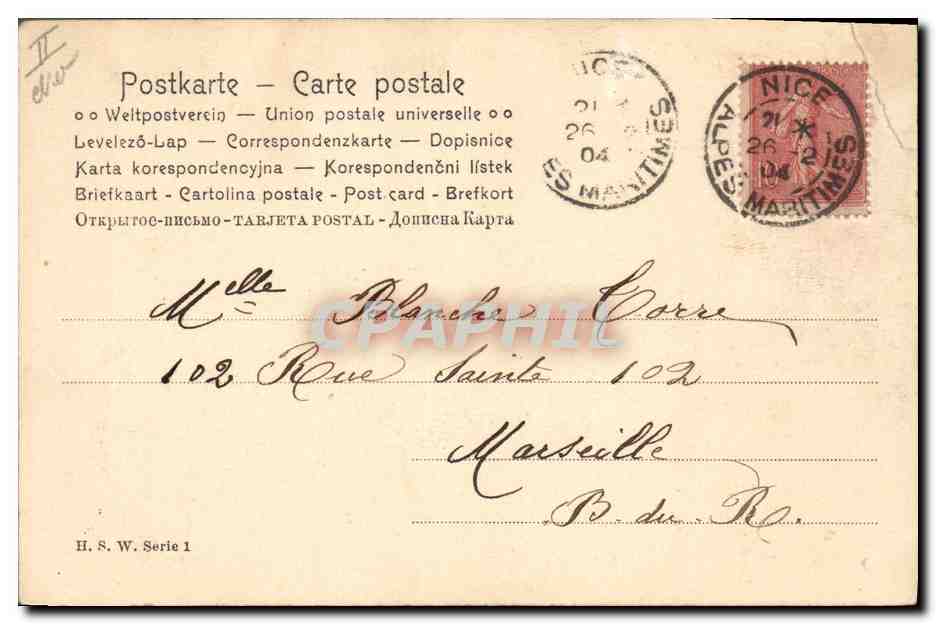 II
Postkarte – Carte postale
Weltpostverein – Union postale universelle
Levelező-Lap – Correspondenzkarte – Dopisnice
Karta korespondencyjna – Korespondenčni lístek
Briefkaart - Cartolina postale - Post card - Brefkort
Открытое-письмо – TARJETA POSTAL - Дописна Карта
NICE
21
26 2
04
ES MARITIMES
NICE
21 *
26 - 2
04
ALPES MARITIMES
Melle Blanche Corre
CPAPHIL
102 Rue Sainte 102
Marseille
B. du. R.
H. S. W. Serie 1